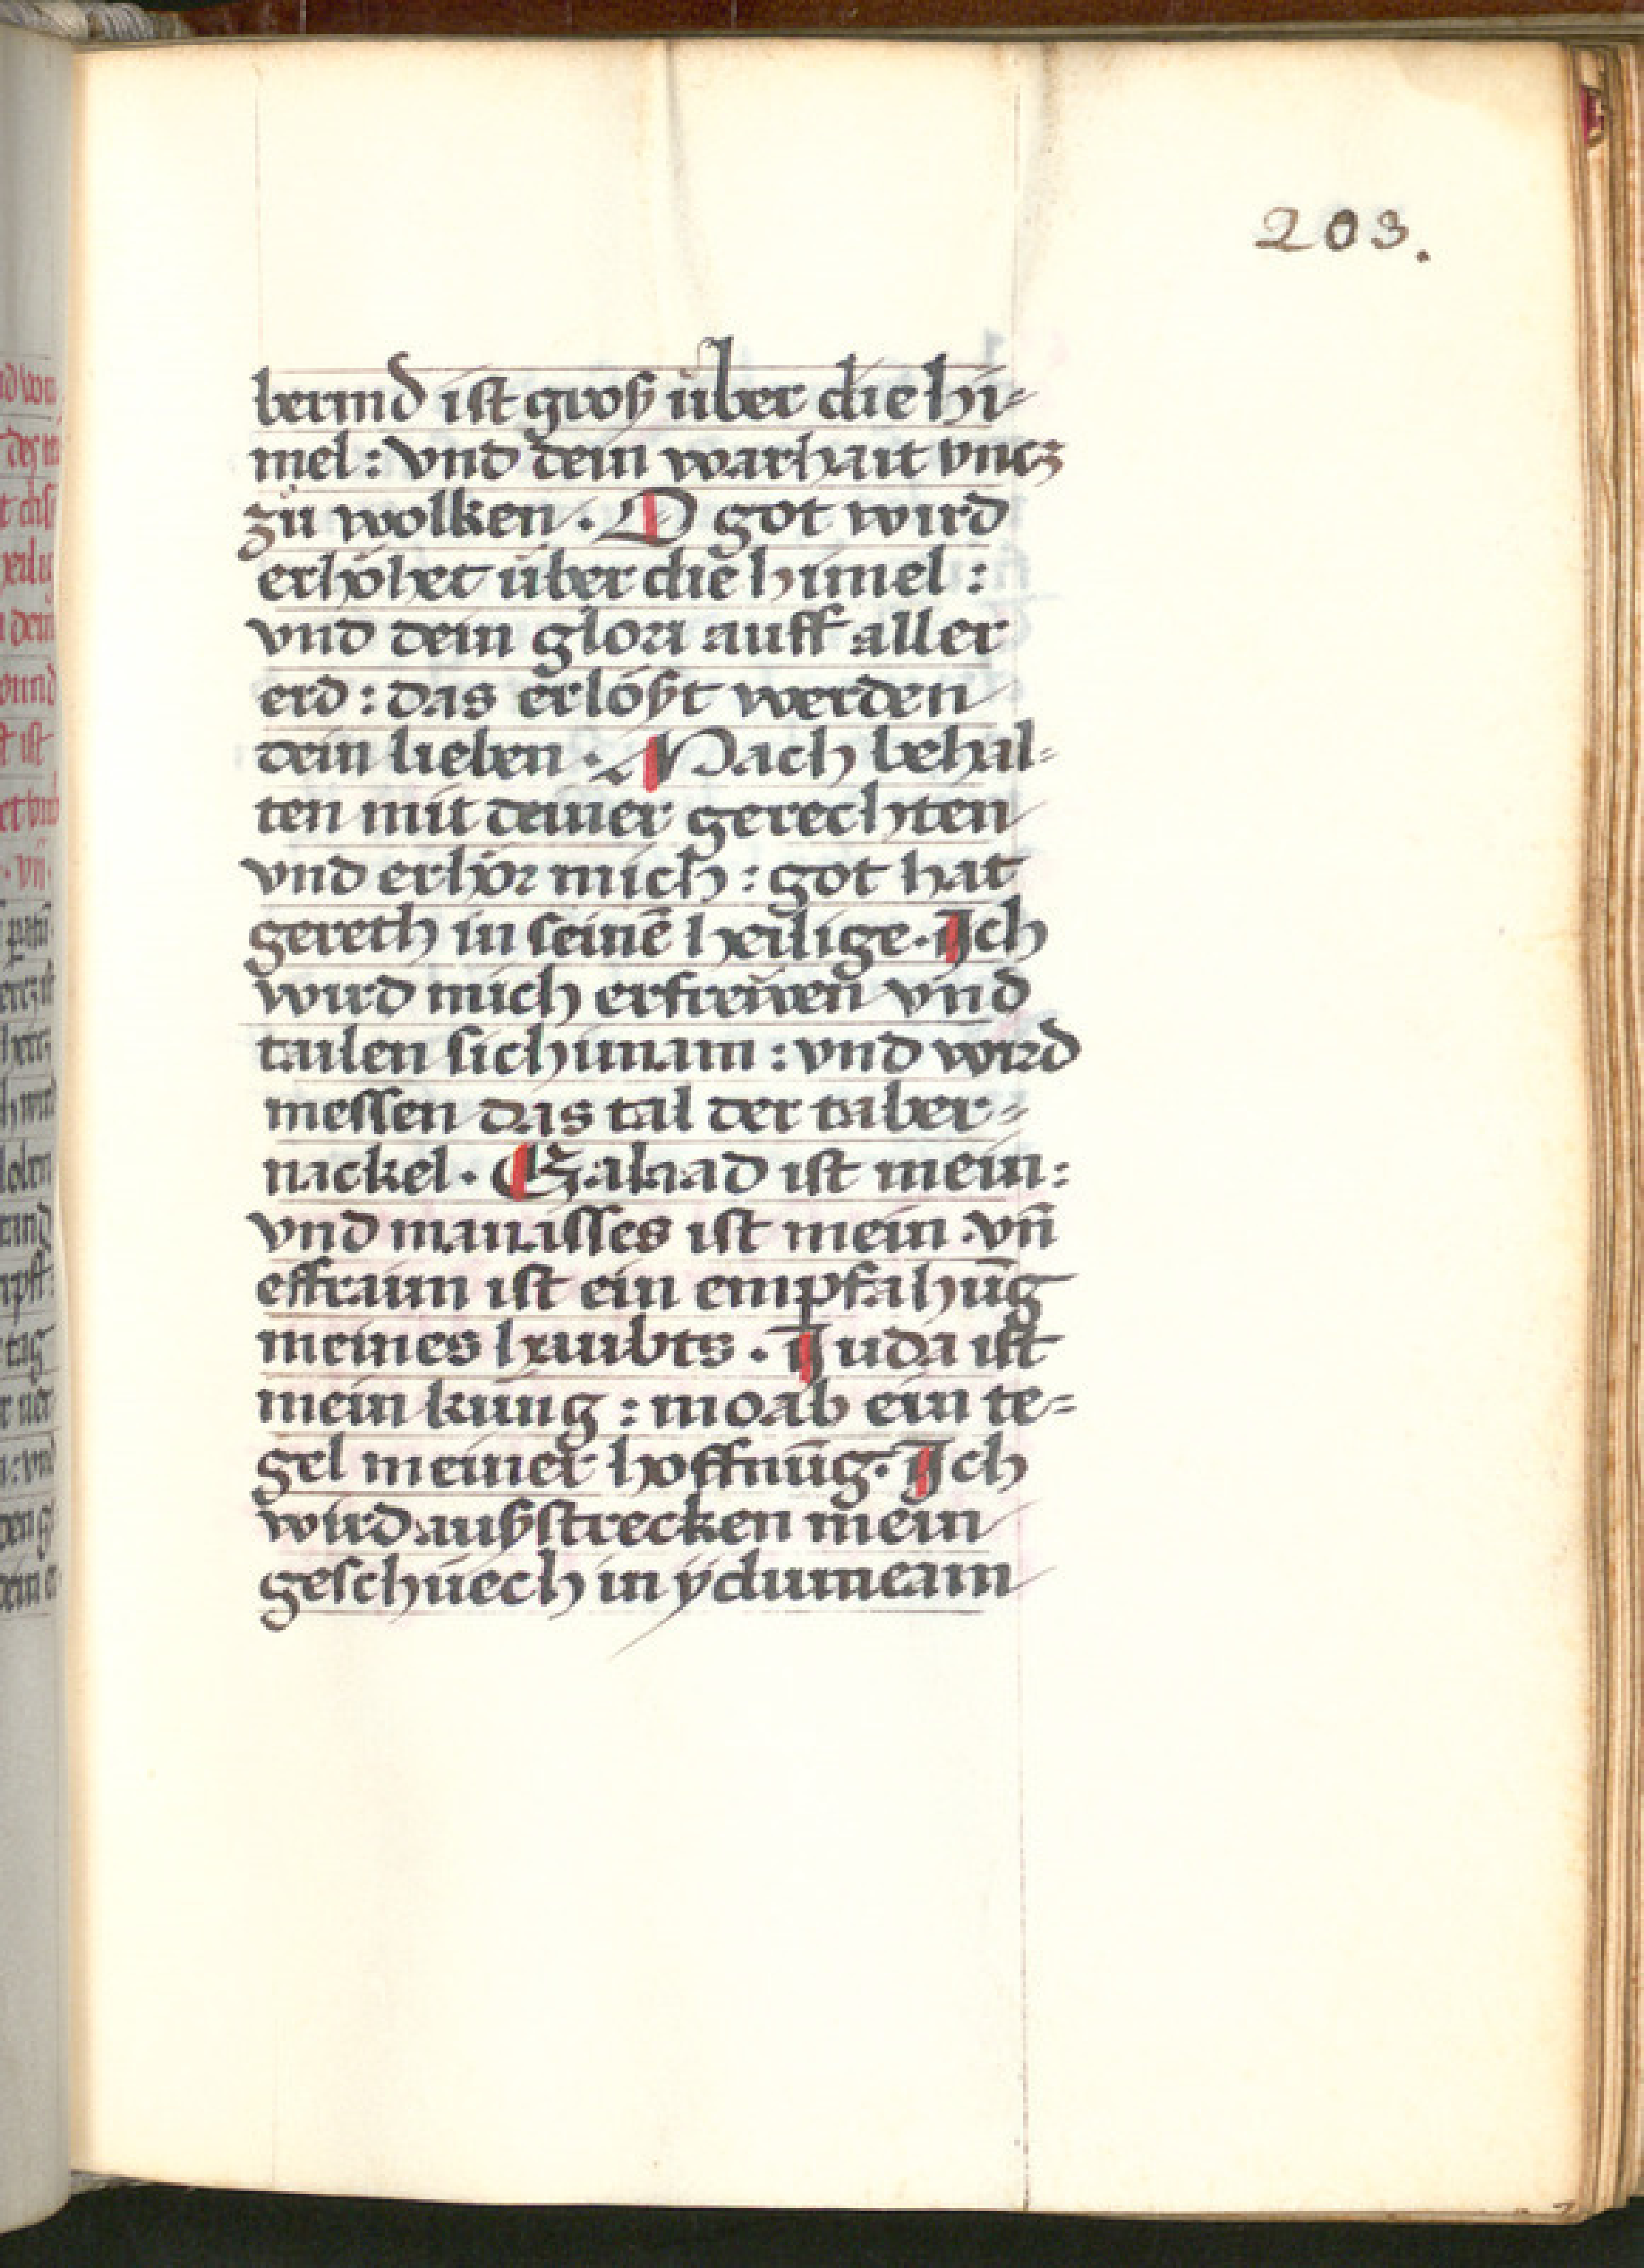 203.
bermd ist groß über die hi-
mel : vnd dein warhait vncz
zů wolken . O got wird
erhöhet über die himel :
vnd dein glori auff aller
erd : das erlößt werden
dein lieben . Mach behal-
ten mit deiner gerechten
vnd erhör mich : got hat
gereth in seinē heilige . Ich
wird mich erfrewen vnd
tailen sichimam : vnd wird
messen das tal der taber-
nackel . Galaad ist mein :
vnd manasses ist mein . vn̄
effraim ist ein empfahūg
meines haubts . Juda ist
mein küng : moab ein te-
gel meiner hoffnūg . Ich
wird außstrecken mein
geschüech in ydumeam